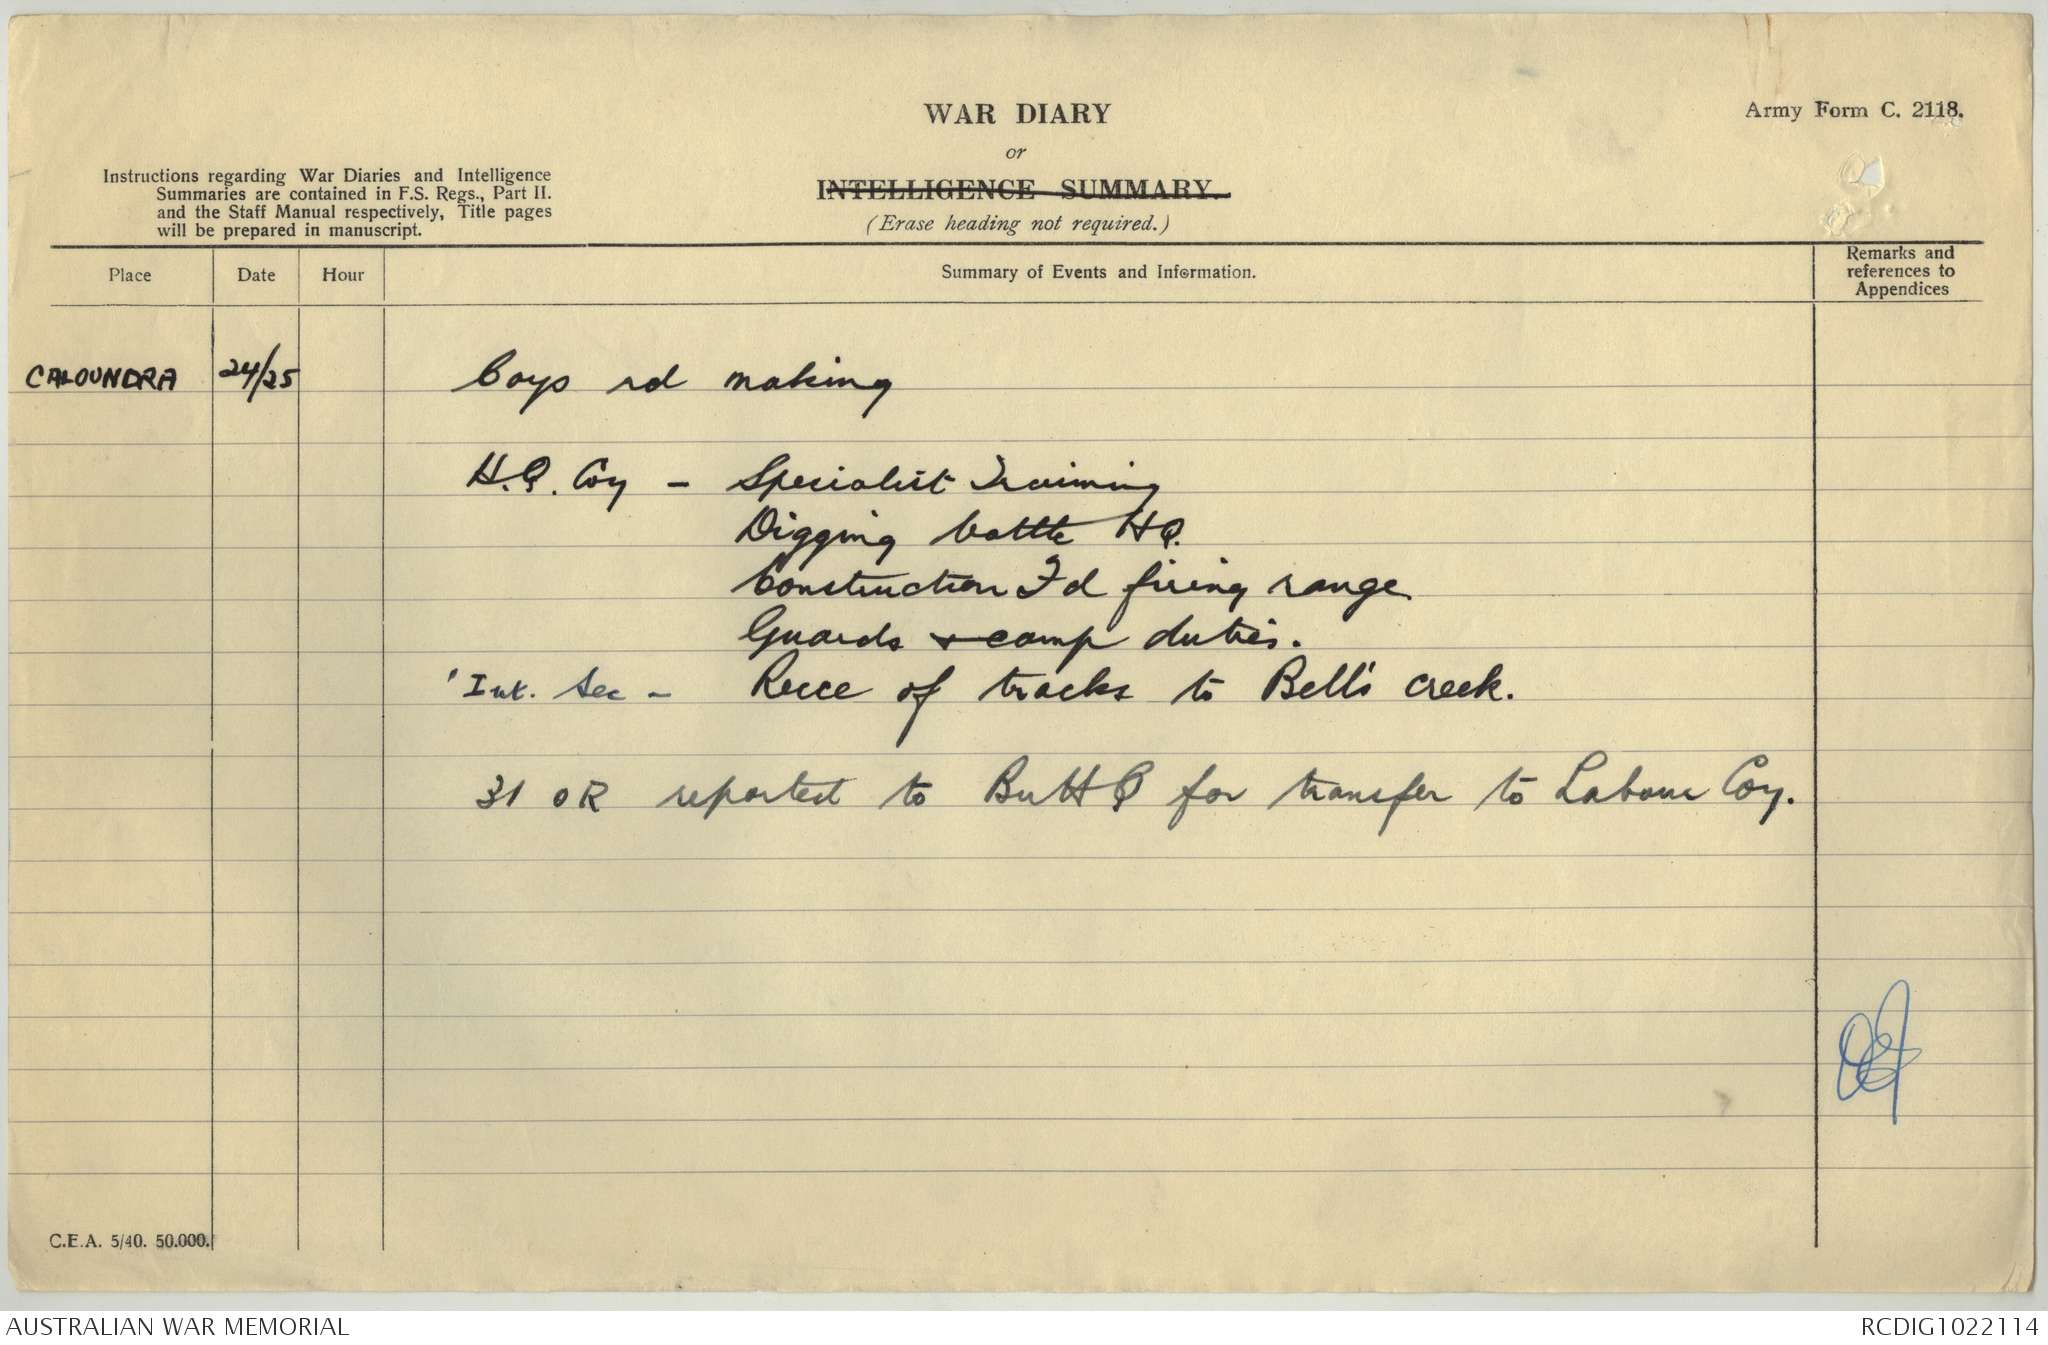 WAR DIARY
or
INTELLIGENCE SUMMARY.
(Erase heading not required.)
Army Form C. 2118.
Instructions regarding War Diaries and Intelligence
Summaries are contained in F.S. Regs., Part II.
and the Staff Manual respectively, Title pages
will be prepared in manuscript.
Place Date Hour Summary of Events and Information. Remarks and references to Appendices
CALOUNDRA 24/25 Coys rd making
H.Q. Coy - Specialist Training
Digging battle HQ.
Construction Fd firing range
Guards & camp duties.
Int. Sec - Recce of tracks to Bell's creek.
31 OR reported to HQ for transfer to Labour Coy.
C.E.A. 5/40. 50.000.
AUSTRALIAN WAR MEMORIAL RCDIG1022114